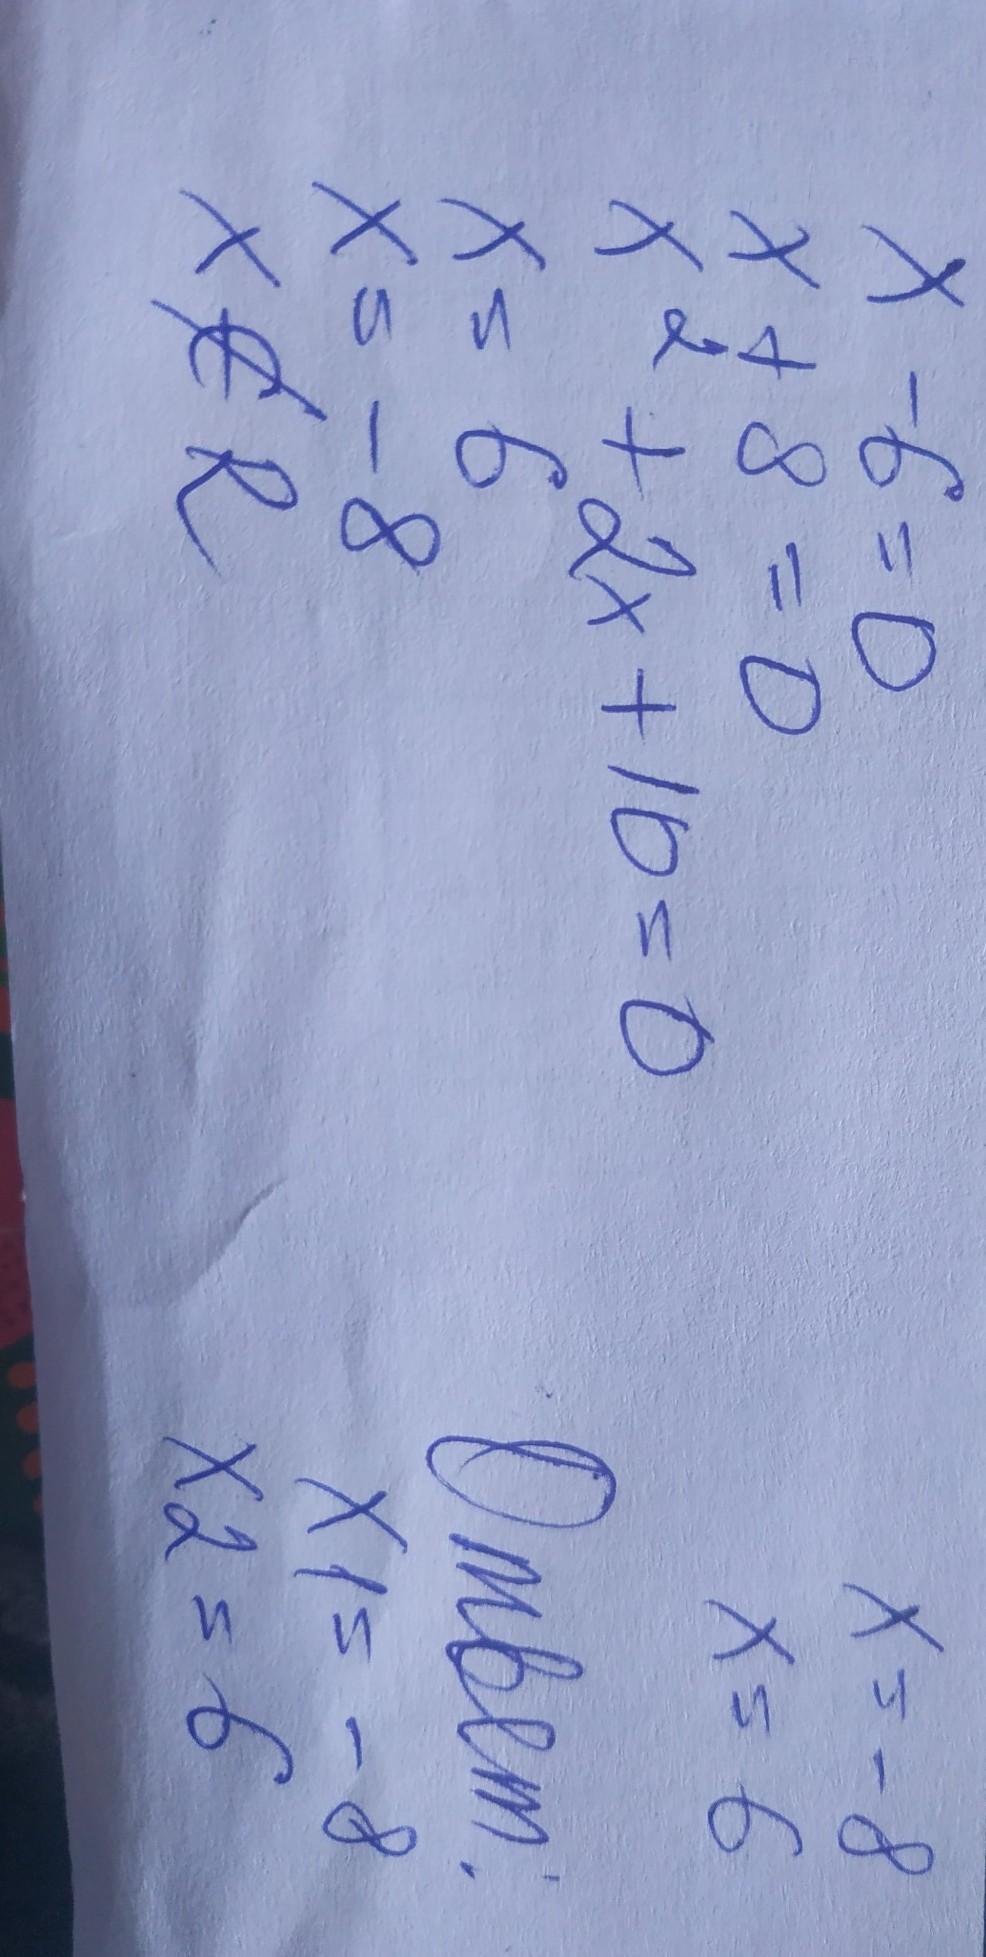 x - 6 = 0
x + 8 = 0
x² + 2x + 10 = 0
x = 6
x = -8
x ∉ R
x = -8
x = 6
Ответ:
x1 = -8
x2 = 6